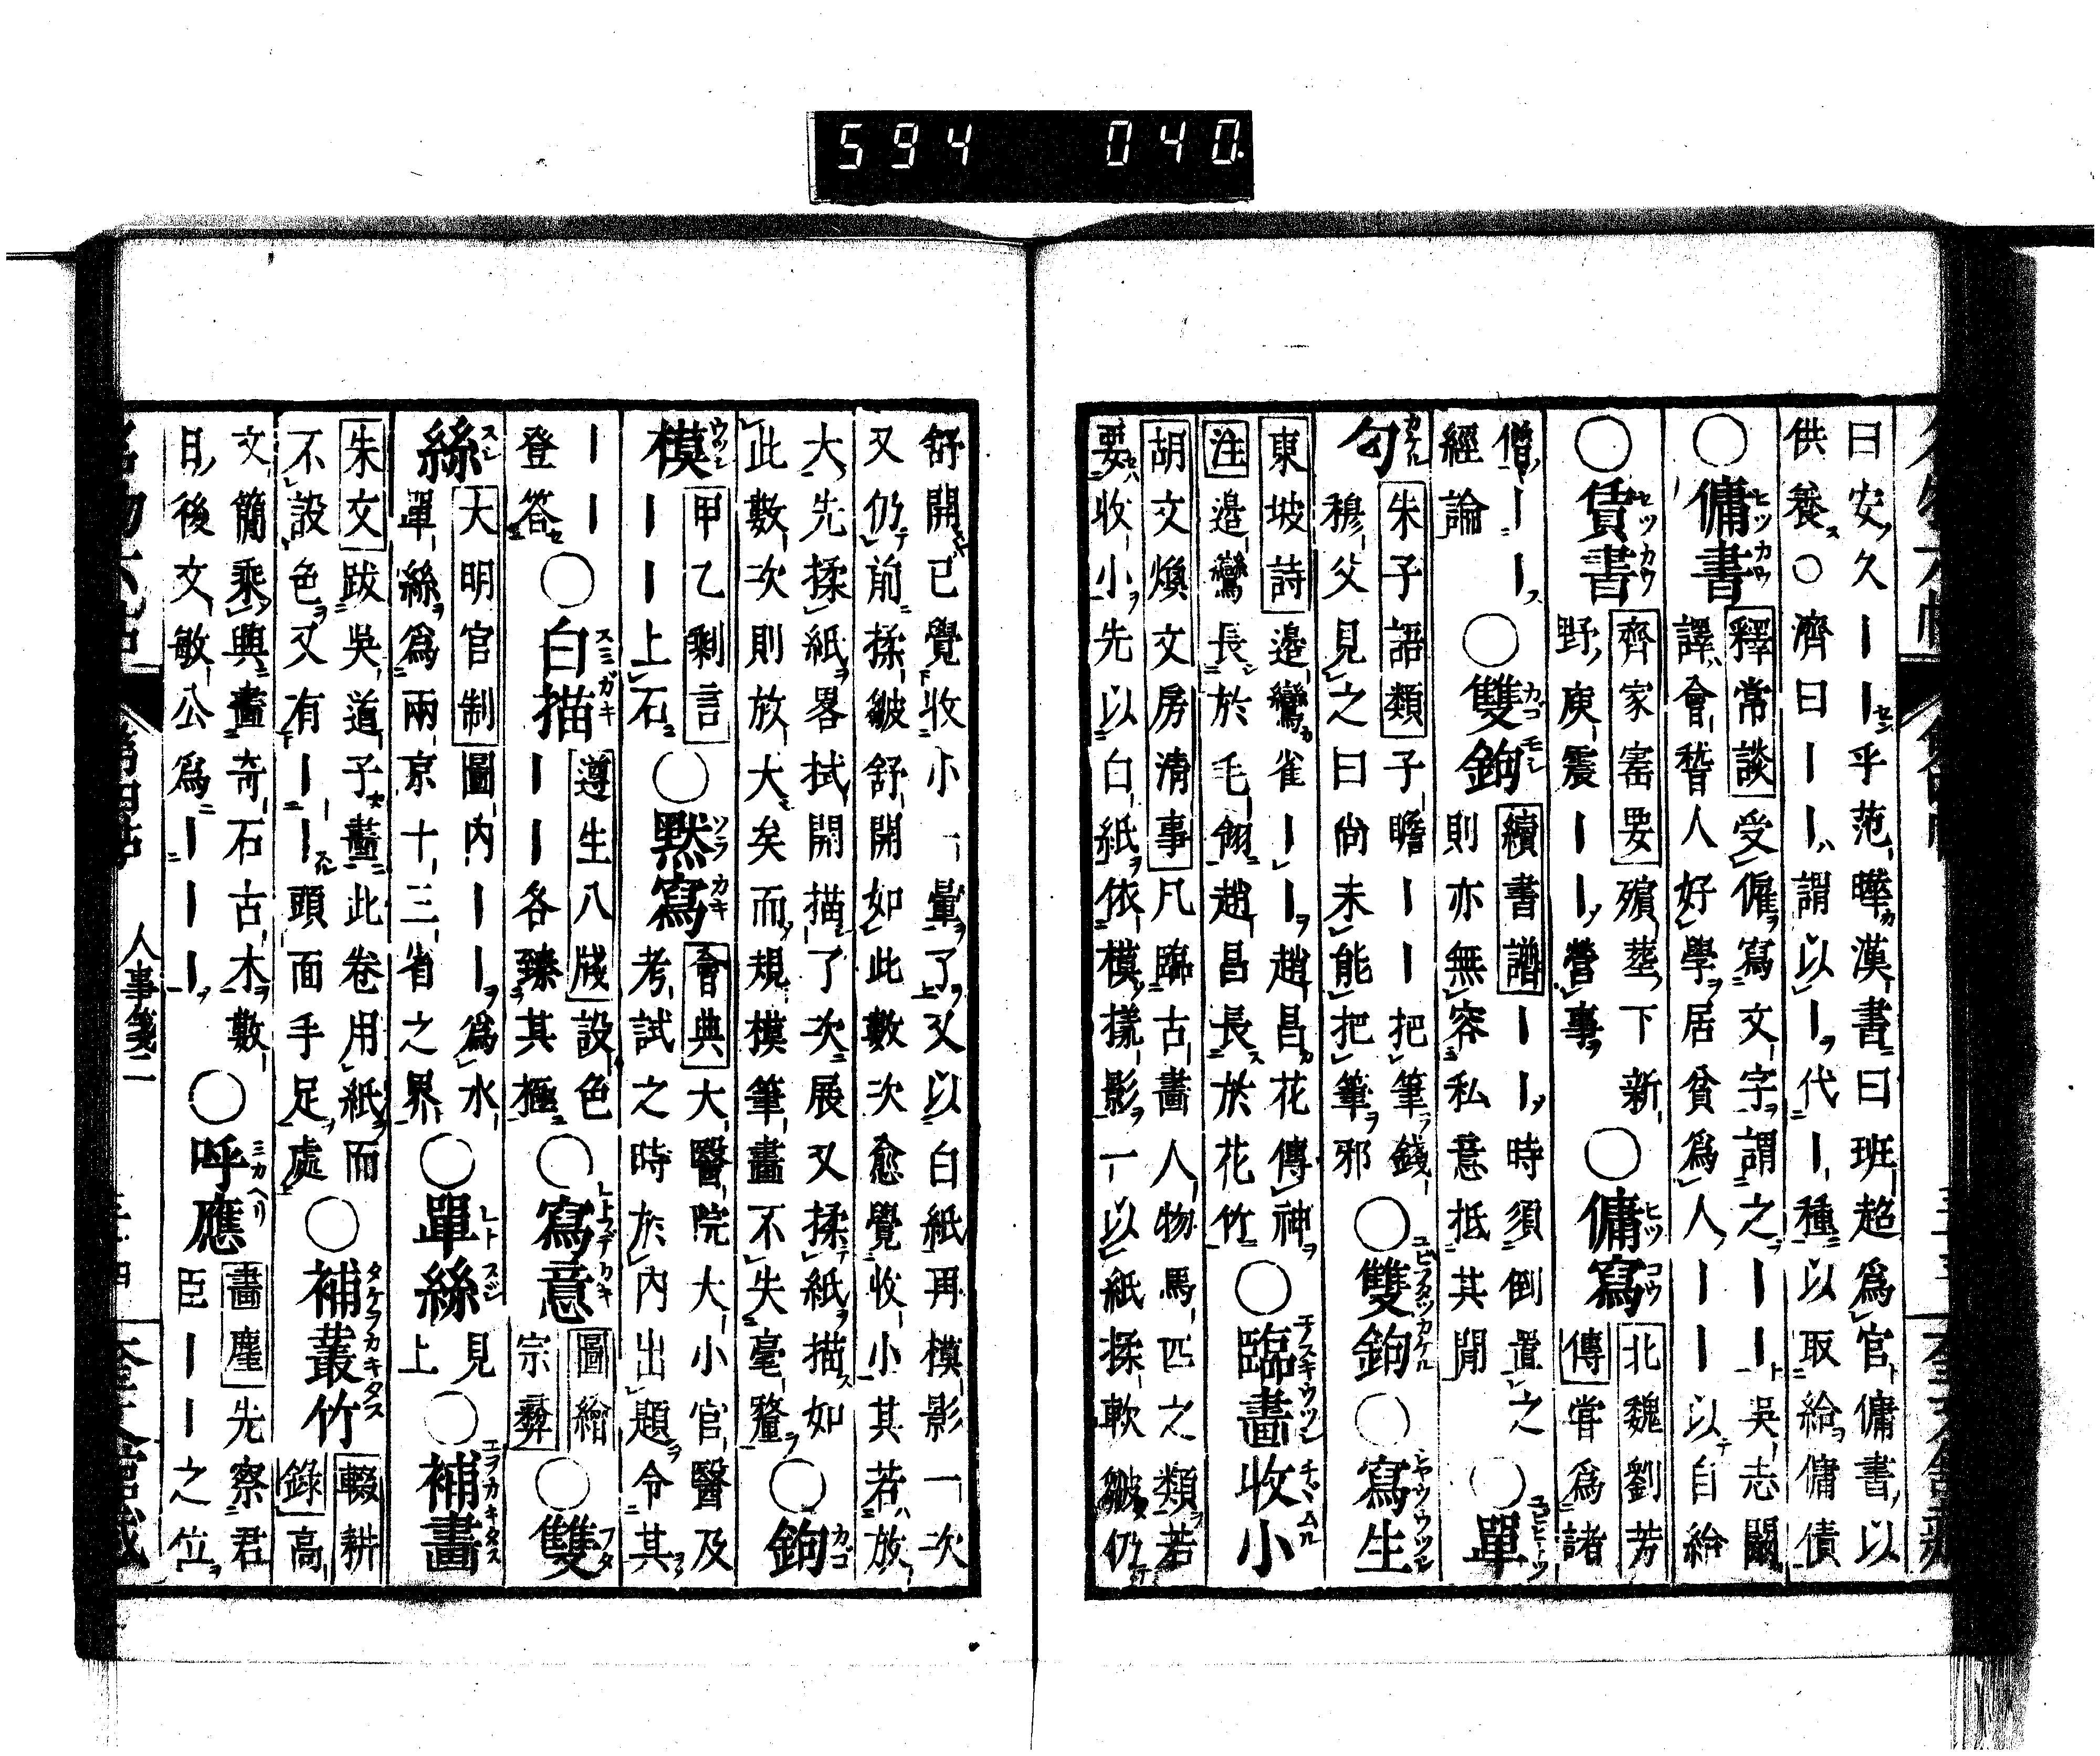 594 040.
曰安久ーー乎范曄漢書曰班超爲官傭書以
供養○濟曰ーー謂以ー代ー種以取給傭債
○傭書 釋常談 受僱寫文字謂之ーー吳志闞
譯會稽人好學居貧爲人ーー以自給
○賃書 齊家寚要 殯葬下新
野庾震ーー營事
○傭寫 北魏劉芳
傳 嘗爲諸
僧ーー
經論
○雙鉤 續書譜 ーー時須倒置之
則亦無容私意抵其閒
○單
勾 朱子語類 子瞻ーー把筆錢
穆父見之曰尙未能把筆邪
○雙鉤○寫生
東坡詩 邉鸞雀ーー趙昌花傳神
注 邉鸞長於毛翎趙昌長於花竹
○臨畫收小
胡文煥文房清事 凡臨古畫人物馬匹之類若
要收小先以白紙依模㨾影一以紙揉軟皺仍
舒開已覺收小一暈了又以白紙再模影一次
又仍前揉皺舒開如此數次愈覺收小其若放
大先揉紙畧拭開描了次展又揉紙描如
此數次則放大矣而規模筆畫不失毫釐
○鉤
模 甲乙剩言
ーーー上石
○默寫 會典 大醫院大小官醫及
考試之時於内出題令其
ーー
登答
○白描 遵生八牋 設色
ーー各臻其極
○寫意 圖繪
宗彜
○雙
絲 大明官制 圖内ーー爲水
單絲爲兩京十三省之界
○單絲 見
上
○補畫
朱文 跋吳道子畫此卷用紙而
不設色又有ーー頭面手足處
○補叢竹 輟耕
錄 高
文簡乘興畫奇石古木數
ーーー
○呼應 畫麈 先察君
臣ーー之位
日後文敏公爲ーーー
人事箋二